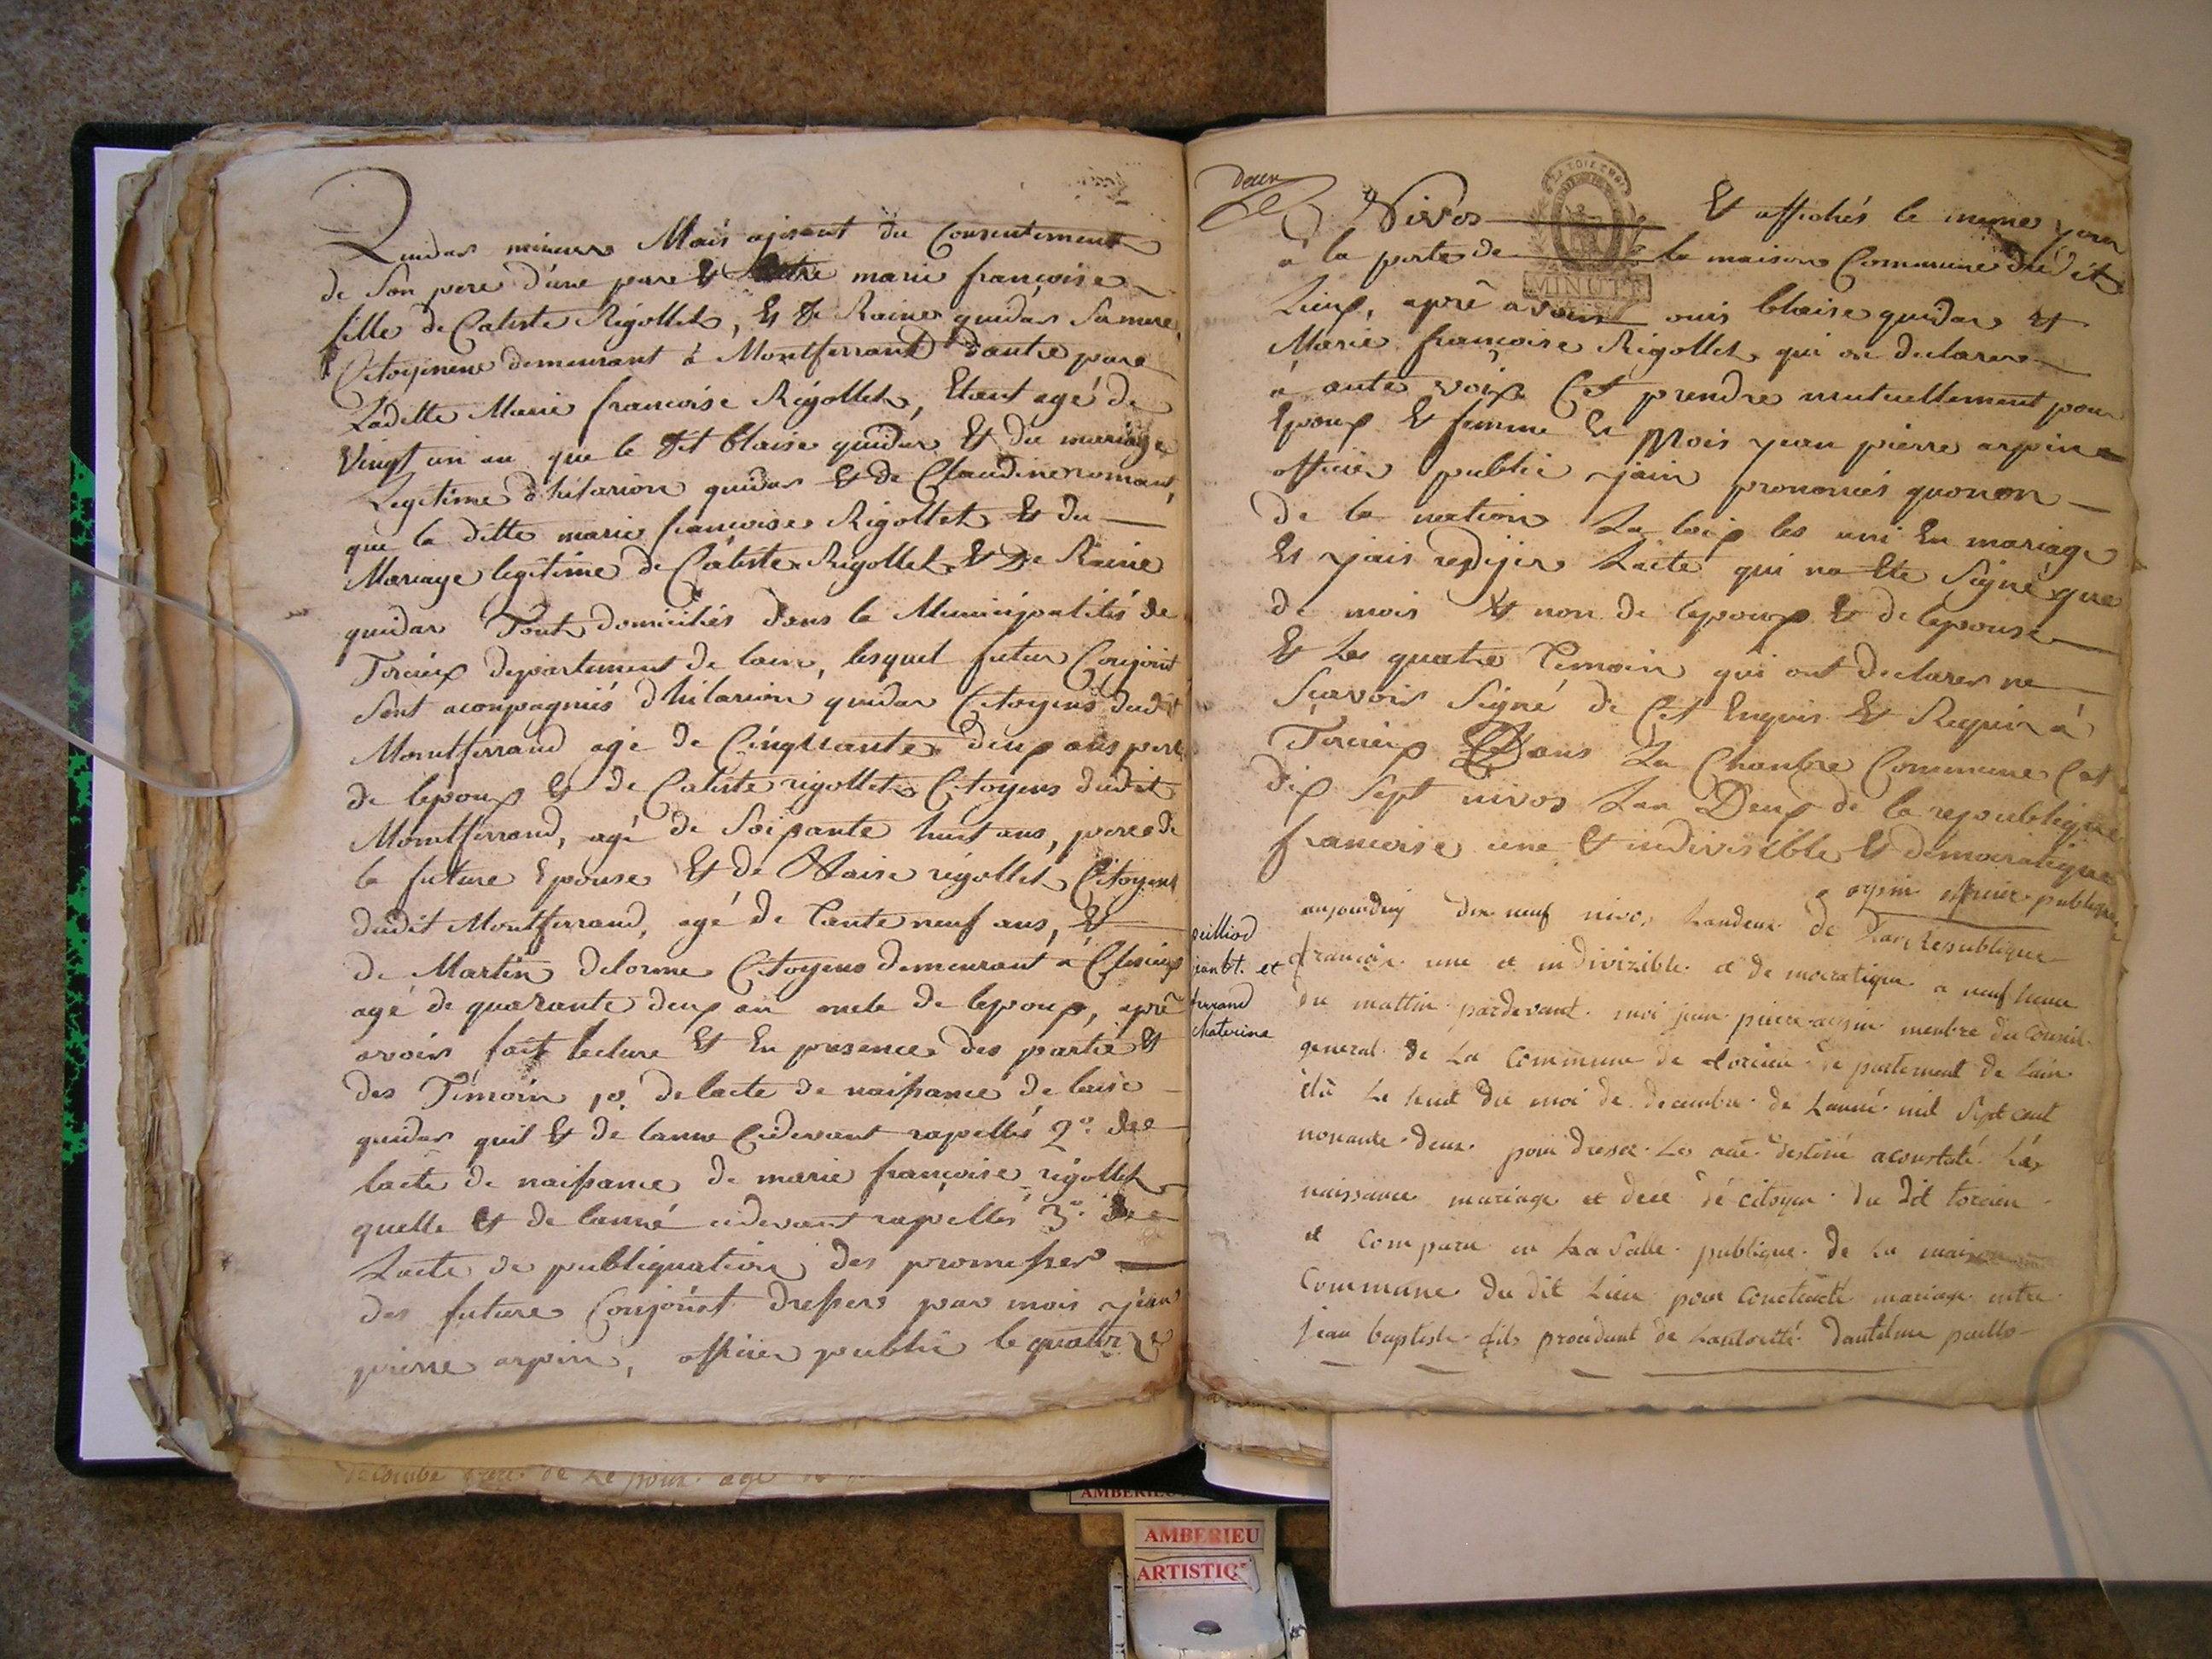 quidar mineur Mais ajisent du Consentement
de Son pere d'une pare Et marie françoise
fille de Catiste Rigollet, Et de Raine quidar Sa mere,
Citoyenene demeurant à Montferrand d'autre pare
Ladette Marie francoise Rigollet, Etant agé de
Vingt un an que le dit blaise quidar Et du mariage
Legitime d'hilarion quidar Et de Claudine romant,
que la ditte marie francoise Rigollet Et du
Mariage legitime de Catiste Rigollet Et De Raine
quidar Tout domiciliés dans la Municipalités de
Torcieux departement de lain, lesquel futur Conjoint
Sont acompagniés d'hilarion quidar Citoyens dudit
Montferrand agé de Cinquante deux ans pere
de lepoux Et de Catiste rigollet Citoyens dudit
Montferrand, agé de Soixante huit ans, pere de
la future Epouse Et de blaise rigollet Citoyens
dudit Montferrand, agé de Tante neuf ans, Et
de Martin delorme Citoyens demeurant à
agé de quarante deux an oncle de lepoux, aprê
avoir fait lecture Et En presence des partie Et
des Témoin 1º de lacte de naissance de laise
quidar quil Et de lanne cidevant rapellés 2º de
lacte de naissance de marie françoise rigollet
quelle Et de lanné cidevant rapellés 3º de
Lacte de publiquation des promesses
des future Conjoint dressers par mois jean
pierre arpin, officier public le quatorze
Deux
Nivos Et affichés le meme jour
a la porte de la maison Commune dudit
Lieux, aprê avoir ouis blaise quidar Et
Marie francoise Rigollet qui on declarer
a aute voix Cet prendre mutuellement pour
Epoux Et femme Et Mois jean pierre arpin
officier public jain prononcés quonon
de la nation La loix les uni En mariage
Et jais redijer Lacte qui na Ete Signé que
de mois Et non de lepoux Et de lepouse
Et Les quatre Temoin qui ont declarer ne
Scavoir Signé de Cet Enquis Et Requis à
Torcieux Dans La Chambre Commune Cet
dix Sept nivos Lan Deux de la republique
francoise une Et indivisible Et democratique
arpin officier publique
peilliod
jean bt. et
ferrand
chaterine
aujourduy dix neuf nivos Landeux de La Republique
francoise une et indivizible et de mocratique a neuf heure
du mattin pardevant moi jean pierre arpin membre du Conseil
general de La Commune de torcieu de partement de Lain
élû Le huit du moi de decembre de Lanné mil Sept cent
nonante deux pour dresser Les acte destiné aconstaté Les
naissance mariage et dece dé citoyen du dit torcieu
et Comparu en La Salle publique de La maison
Commune du dit Lieu pour Contracté mariage entre
jean baptiste fils procédant de Lautorité dantelme
decombe de Lepoux age
AMBERIEU
AMBERIEU
ARTISTIQ
MINUTE